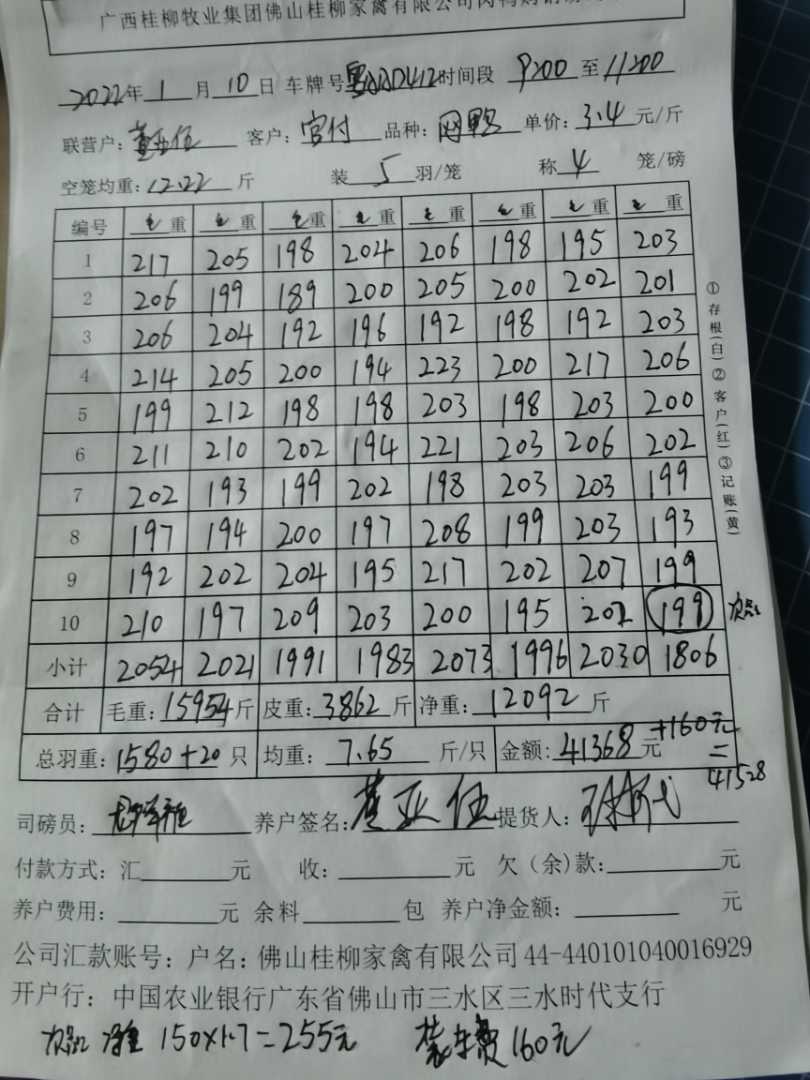 广西桂柳牧业集团佛山桂柳家禽有限公司肉鸭购销
2022年1月10日 车牌号 时间段 9200 至 11200
联营户: 董亚伍 客户: 官付 品种: 网鸭 单价: 3.4 元/斤
空笼均重: 12.22 斤 装 5 羽/笼 称 4 笼/磅
编号 毛重 毛重 毛重 毛重 毛重 毛重 毛重 毛重
1 217 205 198 204 206 198 195 203
2 206 199 189 200 205 200 202 201
3 206 204 192 196 192 198 192 203
4 214 205 200 194 223 200 217 206
5 199 212 198 198 203 198 203 200
6 211 210 202 194 221 203 206 202
7 202 193 199 202 198 203 203 199
8 197 194 200 197 208 199 203 193
9 192 202 204 195 217 202 207 199
10 210 197 209 203 200 195 202 199 次品
小计 2054 2021 1991 1983 2073 1996 2030 1806
合计 毛重: 15954 斤 皮重: 3862 斤 净重: 12092 斤
总羽重: 1580+20 只 均重: 7.65 斤/只 金额: 41368 元 +160元
=
41528
司磅员: 养户签名: 董亚伍 提货人:
付款方式: 汇 元 收: 元 欠(余)款: 元
养户费用: 元 余料 包 养户净金额: 元
公司汇款账号: 户名: 佛山桂柳家禽有限公司 44-440101040016929
开户行: 中国农业银行广东省佛山市三水区三水时代支行
次品 净重 150×1.7=255元 装车费160元
①存根(白)②客户(红)③记账(黄)